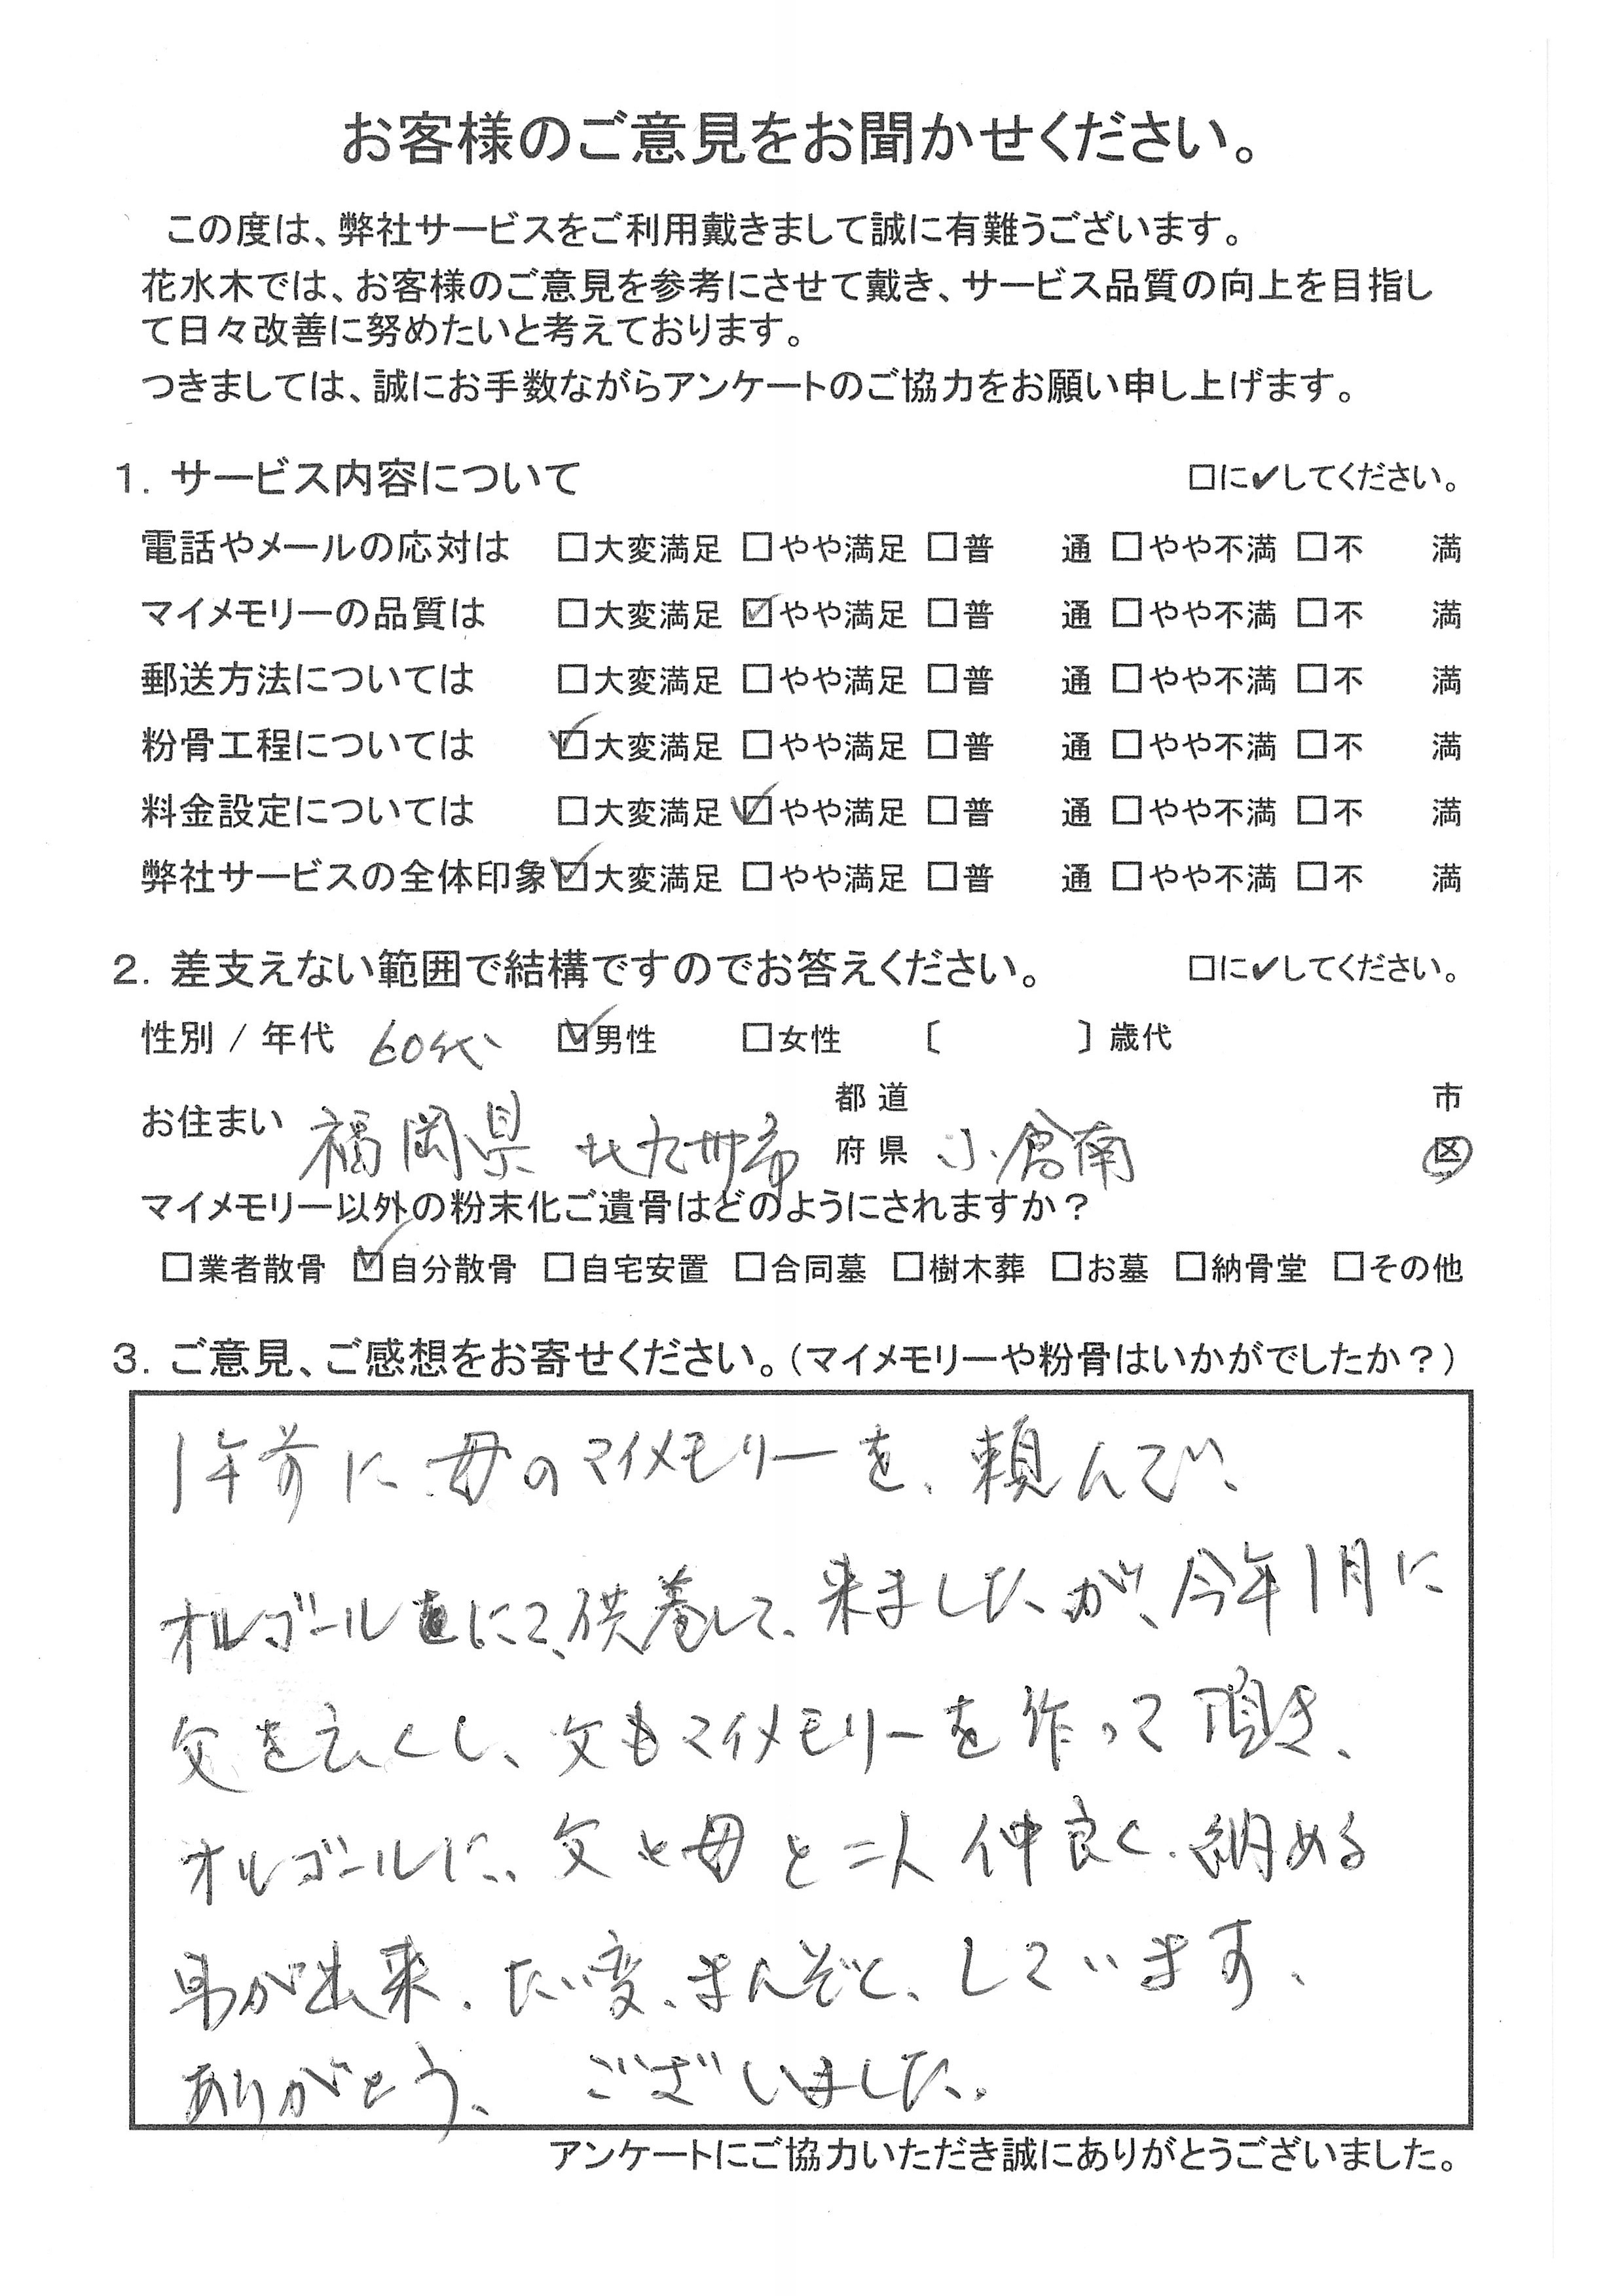 お客様のご意見をお聞かせください。
この度は、弊社サービスをご利用戴きまして誠に有難うございます。
花水木では、お客様のご意見を参考にさせて戴き、サービス品質の向上を目指し
て日々改善に努めたいと考えております。
つきましては、誠にお手数ながらアンケートのご協力をお願い申し上げます。
1. サービス内容について □に✔してください。
電話やメールの応対は □大変満足 □やや満足 □普 通 □やや不満 □不 満
マイメモリーの品質は □大変満足 ☑やや満足 □普 通 □やや不満 □不 満
郵送方法については □大変満足 □やや満足 □普 通 □やや不満 □不 満
粉骨工程については ☑大変満足 □やや満足 □普 通 □やや不満 □不 満
料金設定については □大変満足 ☑やや満足 □普 通 □やや不満 □不 満
弊社サービスの全体印象 ☑大変満足 □やや満足 □普 通 □やや不満 □不 満
2. 差支えない範囲で結構ですのでお答えください。 □に✔してください。
性別 / 年代 60代 ☑男性 □女性 〔 〕歳代
お住まい 福岡県 北九州市 都道府県 小倉南 市区
マイメモリー以外の粉末化ご遺骨はどのようにされますか？
□業者散骨 ☑自分散骨 □自宅安置 □合同墓 □樹木葬 □お墓 □納骨堂 □その他
3. ご意見、ご感想をお寄せください。（マイメモリーや粉骨はいかがでしたか？）
1年前に母のマイメモリーを、頼んで、
オルゴールにて、供養して、来ましたが、今年1月に
父を亡くし、父もマイメモリーを作って頂き、
オルゴールに、父と母と二人仲良く、納める
事が出来、たい変、まんぞく、しています、
ありがとう、ございました。
アンケートにご協力いただき誠にありがとうございました。